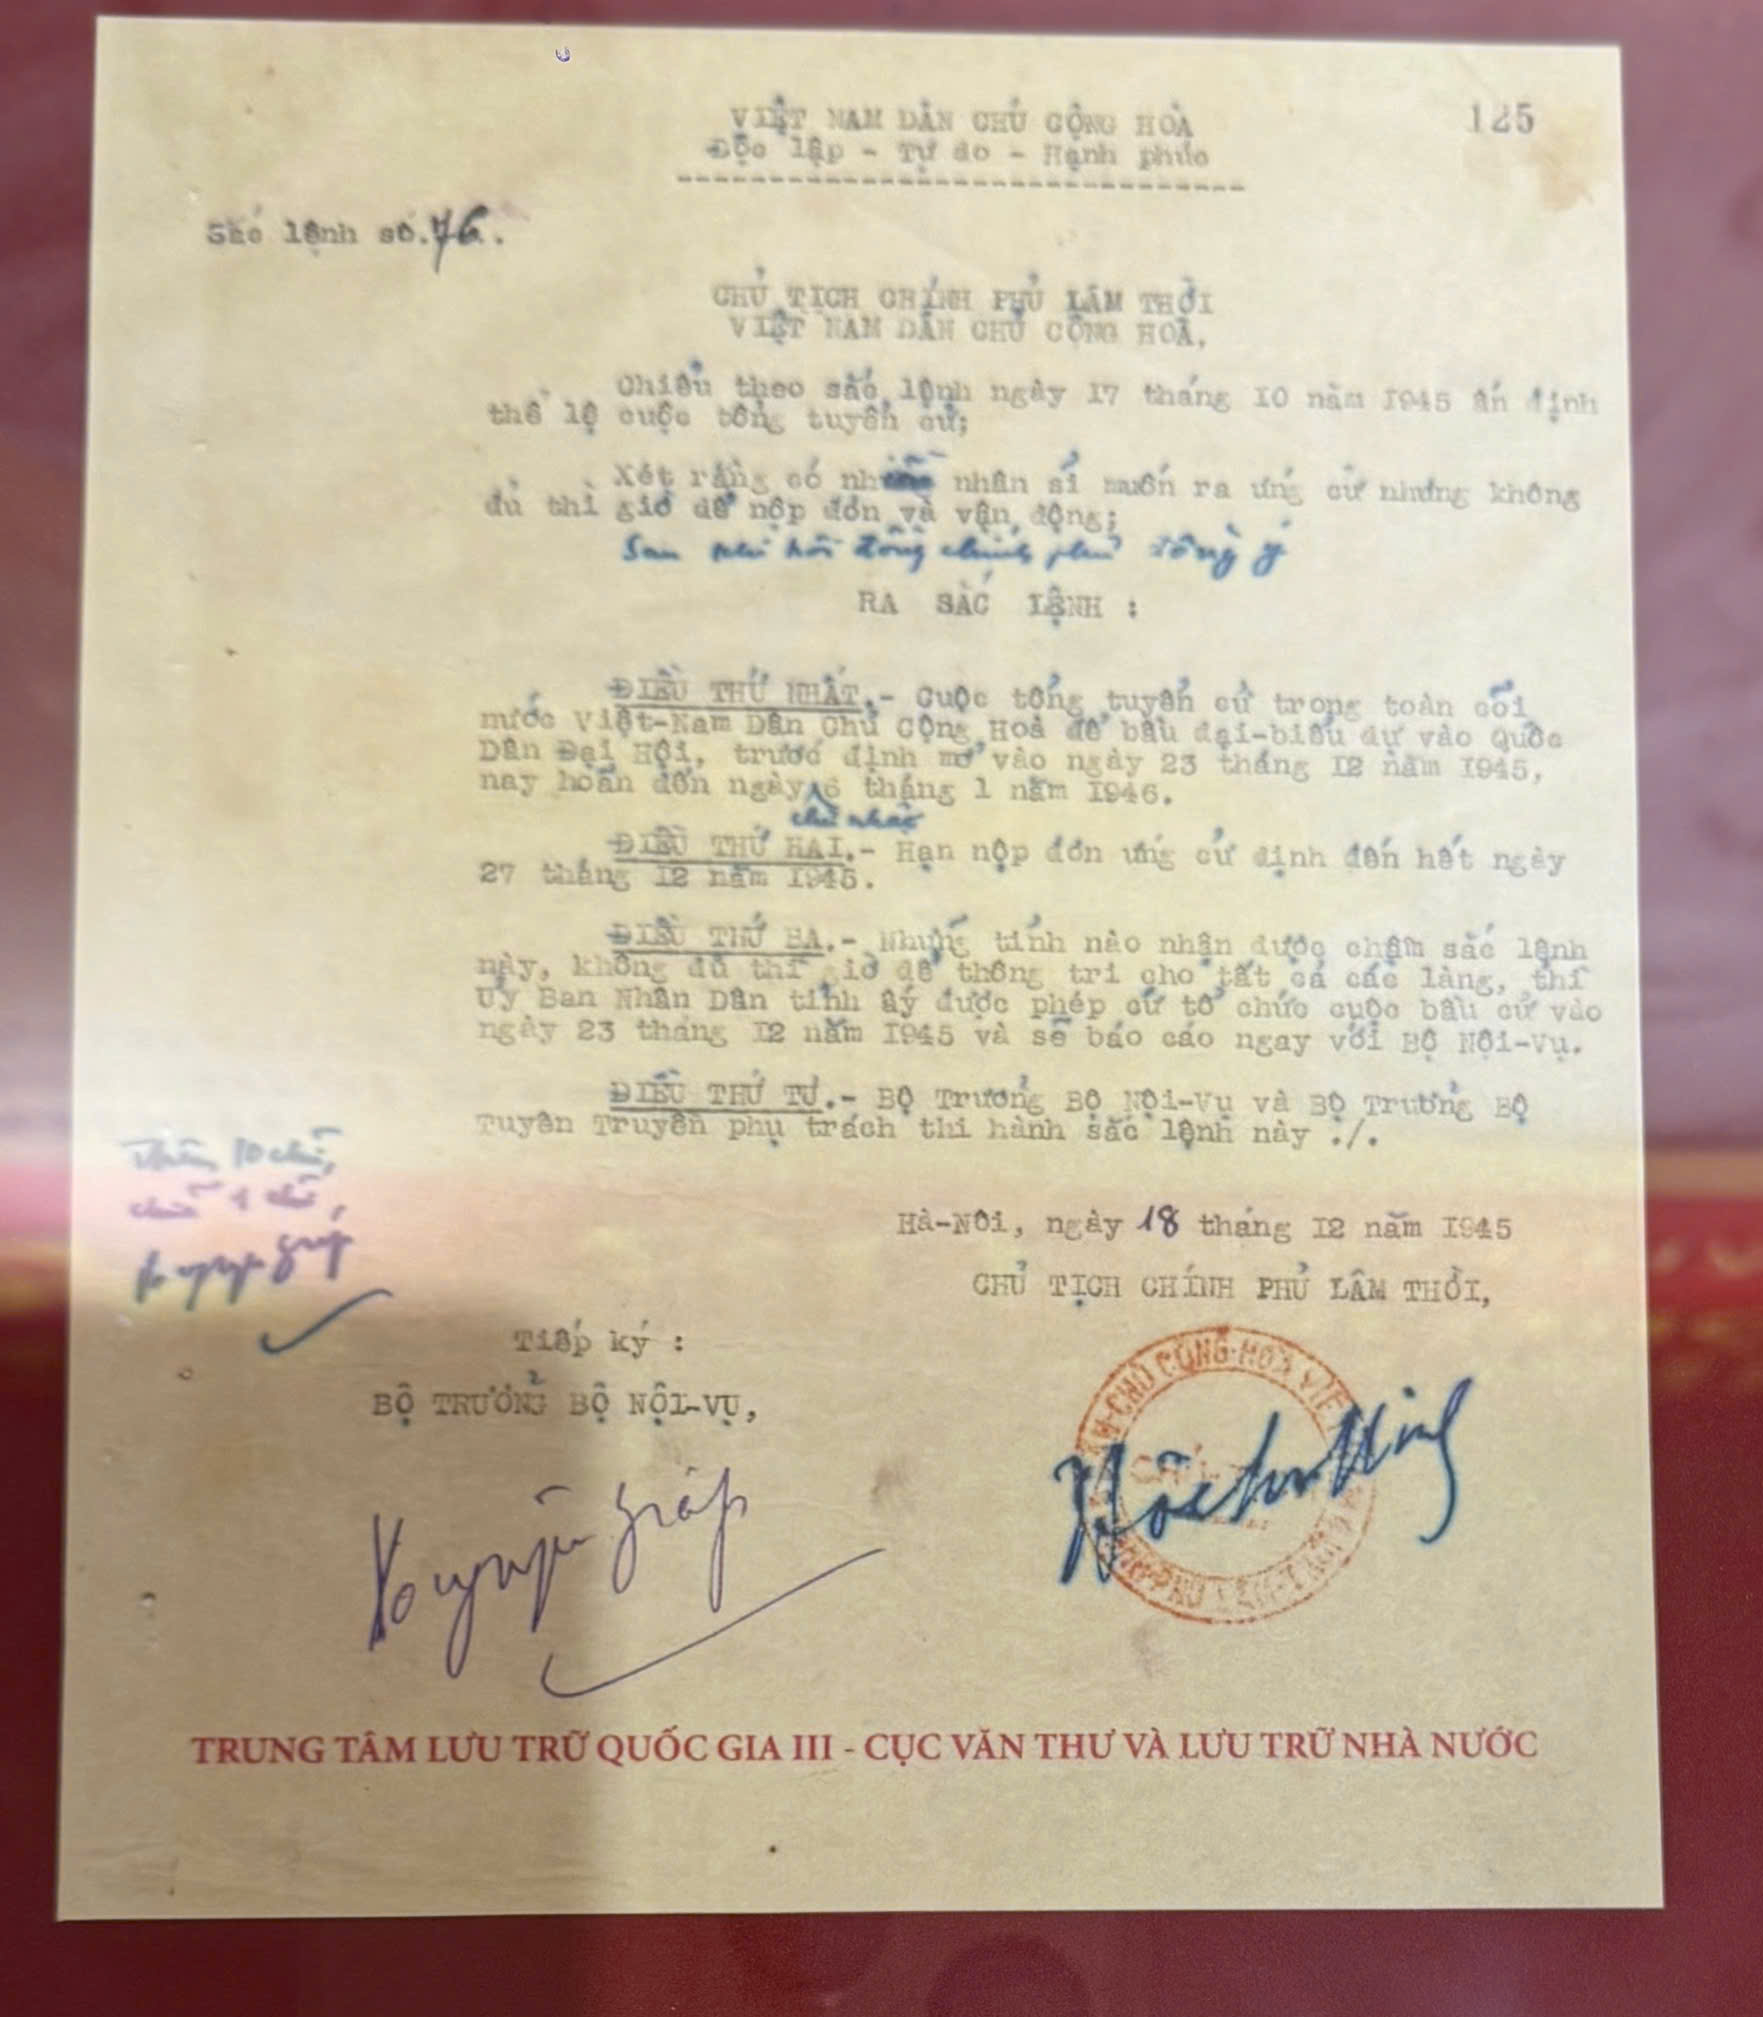 VIỆT NAM DÂN CHỦ CỘNG HOÀ
125
Độc lập - Tự do - Hạnh phúc
Sắc lệnh số.76.
CHỦ TỊCH CHÍNH PHỦ LÂM THỜI
VIỆT NAM DÂN CHỦ CỘNG HOÀ,
Chiểu theo sắc lệnh ngày 17 tháng 10 năm 1945 ấn định
thể lệ cuộc tổng tuyển cử;
Xét rằng có nhiều nhân sĩ muốn ra ứng cử nhưng không
đủ thì giờ để nộp đơn và vận động;
Sau khi hội đồng chính phủ đồng ý
RA SẮC LỆNH :
ĐIỀU THỨ NHẤT.- Cuộc tổng tuyển cử trong toàn cõi
nước Việt-Nam Dân Chủ Cộng Hoà để bầu đại-biểu dự vào Quốc
Dân Đại Hội, trước định mở vào ngày 23 tháng 12 năm 1945,
nay hoãn đến ngày 6 tháng 1 năm 1946.
chủ nhật
ĐIỀU THỨ HAI.- Hạn nộp đơn ứng cử định đến hết ngày
27 tháng 12 năm 1945.
ĐIỀU THỨ BA.- Những tỉnh nào nhận được chậm sắc lệnh
này, không đủ thì giờ để thông tri cho tất cả các làng, thì
Uỷ Ban Nhân Dân tỉnh ấy được phép cứ tổ chức cuộc bầu cử vào
ngày 23 tháng 12 năm 1945 và sẽ báo cáo ngay với Bộ Nội-Vụ.
ĐIỀU THỨ TƯ.- Bộ Trưởng Bộ Nội-Vụ và Bộ Trưởng Bộ
Tuyên Truyền phụ trách thi hành sắc lệnh này ./.
Thêm 10 chữ,
chữa 1 chữ,
Võ Nguyên Giáp
Hà-Nội, ngày 18 tháng 12 năm 1945
CHỦ TỊCH CHÍNH PHỦ LÂM THỜI,
Tiếp ký :
BỘ TRƯỞNG BỘ NỘI-VỤ,
Võ Nguyên Giáp
Hồ Chí Minh
TRUNG TÂM LƯU TRỮ QUỐC GIA III - CỤC VĂN THƯ VÀ LƯU TRỮ NHÀ NƯỚC